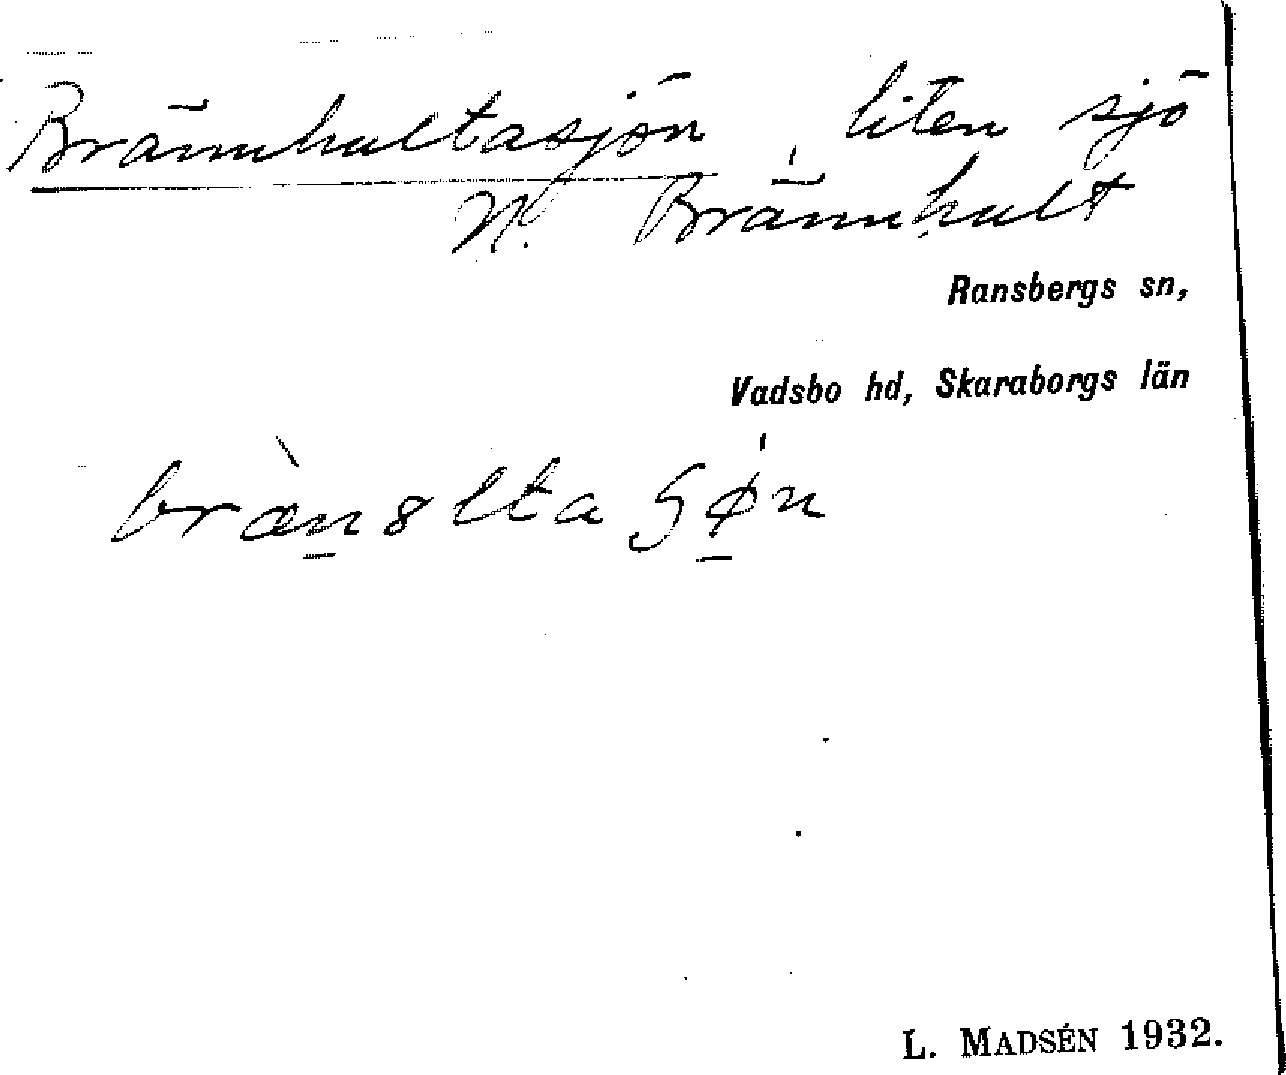 Brännhultasjön, liten sjö
N. Brännhult
Ransbergs sn,
Vadsbo hd, Skaraborgs län
bræ̀n8lta ʃǿn
L. MADSÉN 1932.